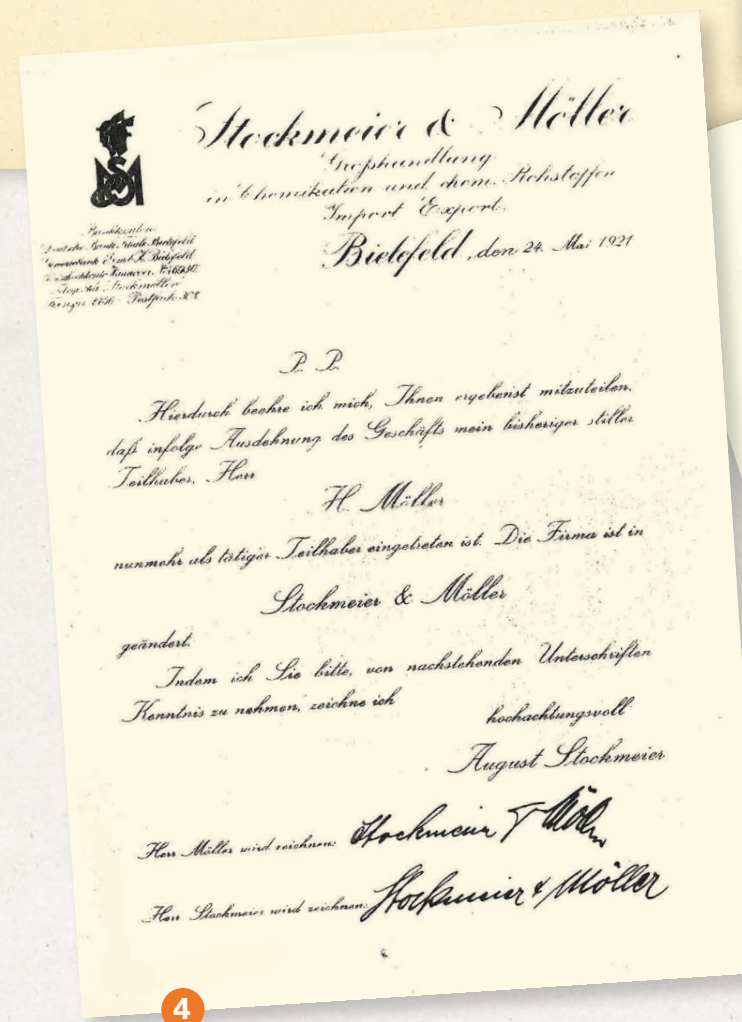 Stockmeier & Möller
Großhandlung
in Chemikalien und chem. Rohstoffen
Import Export.
Bielefeld, den 24. Mai 1921
SM
Bankkonten
Deutsche Bank Bielefeld
Bielefeld
Hannover
Stockmöller
Postfach
P. P.
Hierdurch beehre ich mich, Ihnen ergebenst mitzuteilen,
daß infolge Ausdehnung des Geschäfts mein bisheriger stiller
Teilhaber, Herr
H. Möller
nunmehr als tätiger Teilhaber eingetreten ist. Die Firma ist in
Stockmeier & Möller
geändert.
Indem ich Sie bitte, von nachstehenden Unterschriften
Kenntnis zu nehmen, zeichne ich
hochachtungsvoll
August Stockmeier
Herr Möller wird zeichnen: Stockmeier & Möller
Herr Stockmeier wird zeichnen: Stockmeier & Möller
4